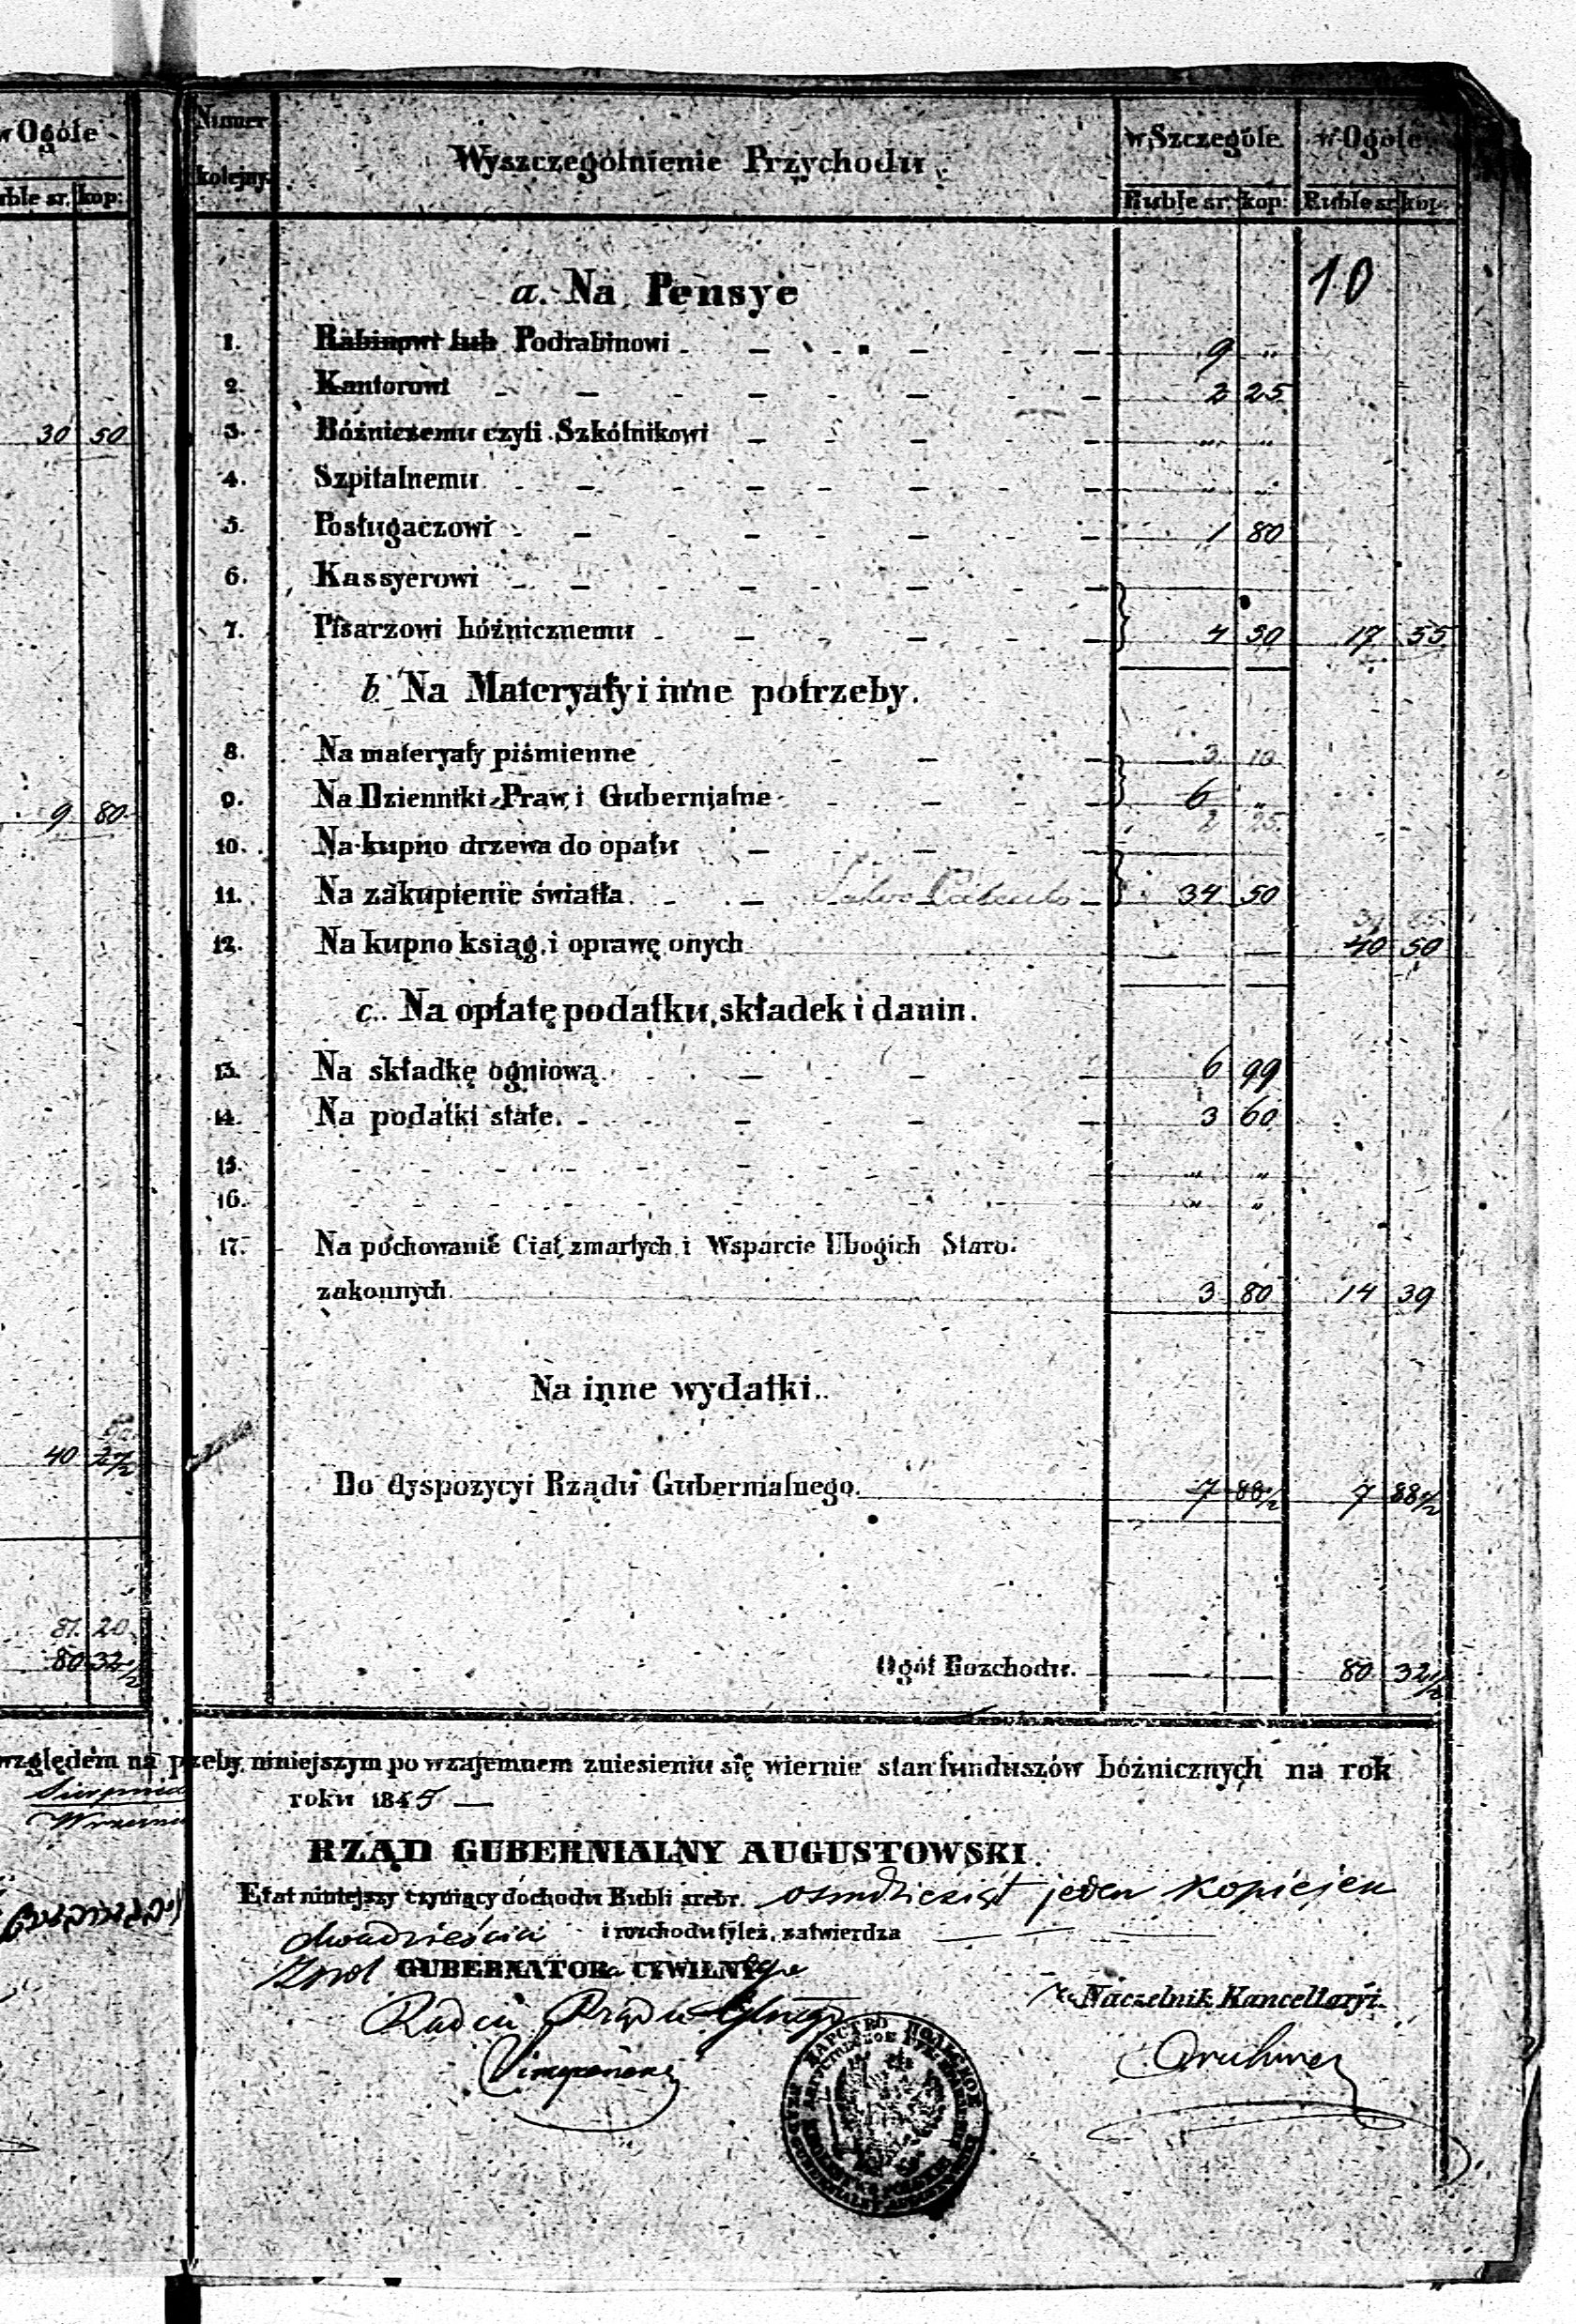 w Ogóle
ruble sr. kop:
30 50
9 80
40 27½
81. 20
80 32½
Numer kolejny. Wyszczególnienie Przychodu w Szczególe w Ogóle
Ruble sr. kop: Ruble sr. kop:
10
a. Na Pensye
1. Rabinowi lub Podrabinowi 9 „
2. Kantorowi 2 25
3. Bóżniczemu czyli Szkólnikowi „ „
4. Szpitalnemu „ „
5. Posługaczowi 1 80
6. Kassyerowi
7. Pisarzowi bóżnicznemu 4 50 17 55
b. Na Materyały i inne potrzeby.
8. Na materyały piśmienne 3 10
9. Na Dzienniki Praw i Gubernialne 6 „
2 25
10. Na kupno drzewa do opału
11. Na zakupienie światła 34 50
12. Na kupno ksiąg i oprawę onych — — 40 50
c. Na opłatę podatku, składek i danin.
13. Na składkę ogniową 6 99
14. Na podatki stałe. 3 60
15. „ „
16. „ „
17. Na pochowanie Ciał zmarłych i Wsparcie Ubogich Staro-
zakonnych 3 80 14 39
Na inne wydatki.
Do dyspozycyi Rządu Gubernialnego. 7 88½ 7 88½
Ogół Rozchodu. — — 80 32½
względem na przeby niniejszym po wzajemnem zniesieniu się wiernie stan funduszów bóżnicznych na rok
Sierpnia
roku 1845 —
Wrzesnia
RZĄD GUBERNIALNY AUGUSTOWSKI.
Etat niniejszy czyniący dochodu Rubli srebr. osmdziesiąt jeden kopiejek
dwadzieścia i rozchodu tyleż, zatwierdza
GUBERNATOR CYWILNY
Naczelnik Kancellaryi.
Radca Rządu